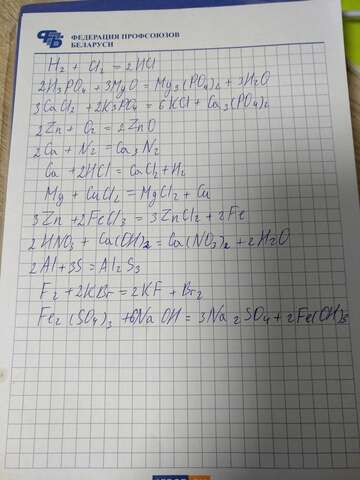 ФЕДЕРАЦИЯ ПРОФСОЮЗОВ
БЕЛАРУСИ
H₂ + Cl₂ = 2HCl
2H₃PO₄ + 3MgO = Mg₃(PO₄)₂ + 3H₂O
3CaCl₂ + 2K₃PO₄ = 6KCl + Ca₃(PO₄)₂
2Zn + O₂ = 2ZnO
2Ca + N₂ = Ca₃N₂
Ca + 2HCl = CaCl₂ + H₂
Mg + CuCl₂ = MgCl₂ + Cu
3Zn + 2FeCl₃ = 3ZnCl₂ + 2Fe
2HNO₃ + Ca(OH)₂ = Ca(NO₃)₂ + 2H₂O
2Al + 3S = Al₂S₃
F₂ + 2KBr = 2KF + Br₂
Fe₂(SO₄)₃ + 6NaOH = 3Na₂SO₄ + 2Fe(OH)₃